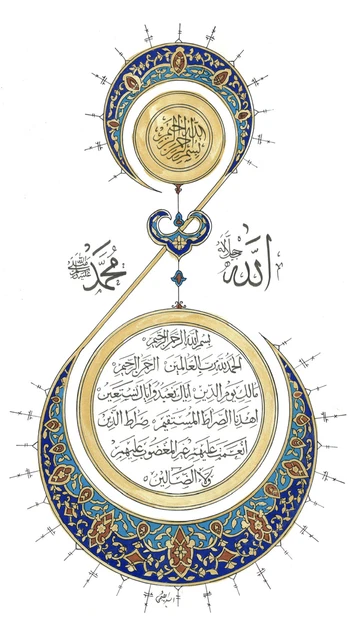 بسم الله الرحمن الرحيم
الله جل جلاله
محمد صلى الله عليه وسلم
بسم الله الرحمن الرحيم
الحمد لله رب العالمين الرحمن الرحيم
مالك يوم الدين اياك نعبد واياك نستعين
اهدنا الصراط المستقيم صراط الذين
أنعمت عليهم غير المغضوب عليهم
ولا الضالين